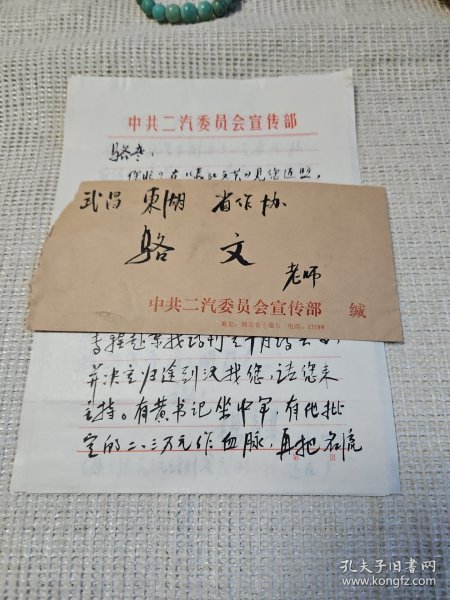 中共二汽委员会宣传部
骆老:
您好!
武昌 東湖 省作协
骆 文
老师
中共二汽委员会宣传部 缄
地址:湖北省十堰市 电话:23166
并决定归途到汉找您,请您来
主持。有黄书记坐中军,有他批
定的二、三万元作血脉,再把名流
页
孔夫子旧书网
www.kongfz.com